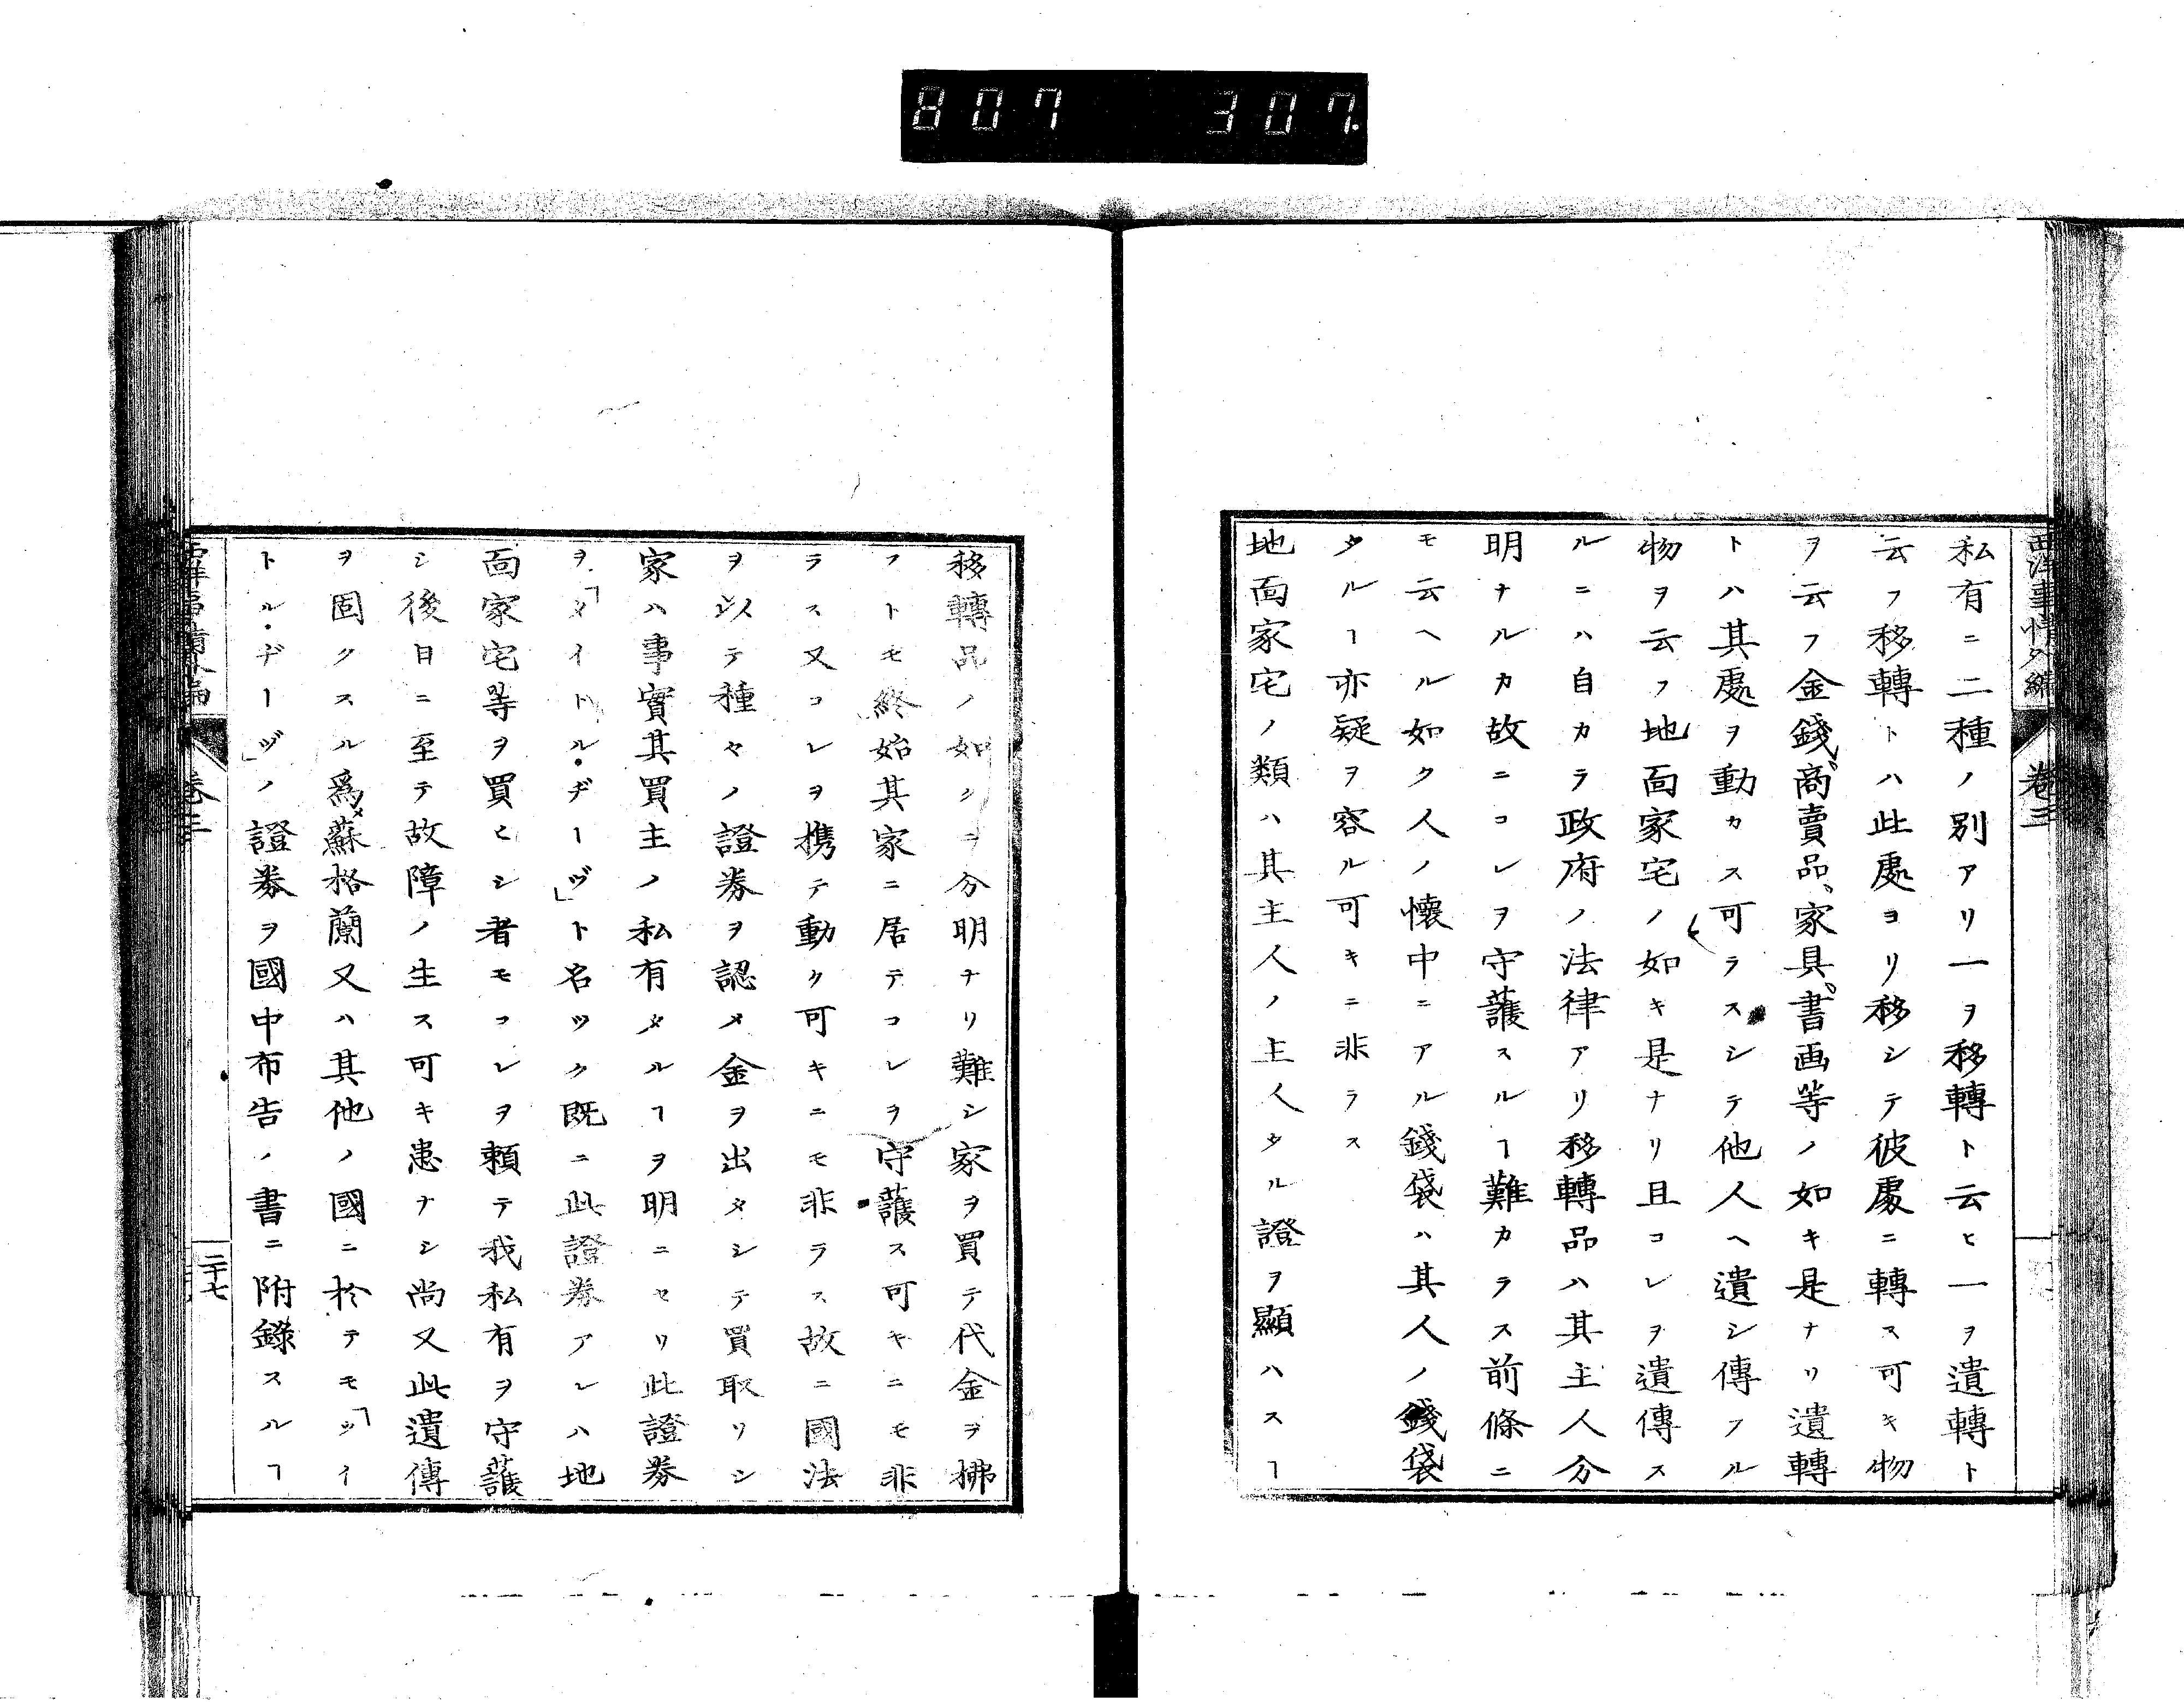 807 307.
西洋事情外編 卷三
私有ニ二種ノ別アリ一ヲ移轉ト云ヒ一ヲ遺轉ト
云フ移轉トハ此處ヨリ移シテ彼處ニ轉ス可キ物
ヲ云フ金錢、商賣品、家具、書画等ノ如キ是ナリ遺轉
トハ其處ヲ動カス可ラスシテ他人ヘ遺シ傳フル
物ヲ云フ地面家宅ノ如キ是ナリ且コレヲ遺傳ス
ルニハ自カラ政府ノ法律アリ移轉品ハ其主人分
明ナルカ故ニコレヲ守護スルヿ難カラス前條ニ
モ云ヘル如ク人ノ懷中ニアル錢袋ハ其人ノ錢袋
タルヿ亦疑ヲ容ル可キニ非ラス
地面家宅ノ類ハ其主人ノ主人タル證ヲ顯ハスヿ
移轉品ノ如ク分明ナリ難シ家ヲ買テ代金ヲ拂
フトモ終始其家ニ居テコレヲ守護ス可キニモ非
ラス又コレヲ携テ動ク可キニモ非ラス故ニ國法
ヲ以テ種々ノ證券ヲ認メ金ヲ出タシテ買取リシ
家ハ事實其買主ノ私有タルヿヲ明ニセリ此證券
ヲ「タイトル・ヂーヅ」ト名ツク既ニ此證券アレハ地
面家宅等ヲ買ヒシ者モコレヲ頼テ我私有ヲ守護
シ後日ニ至テ故障ノ生ス可キ患ナシ尚又此遺傳
ヲ固クスル爲メ蘇格蘭又ハ其他ノ國ニ於テモ「タイ
トル・ヂーヅ」ノ證券ヲ國中布告ノ書ニ附錄スルヿ
卷三
二十七